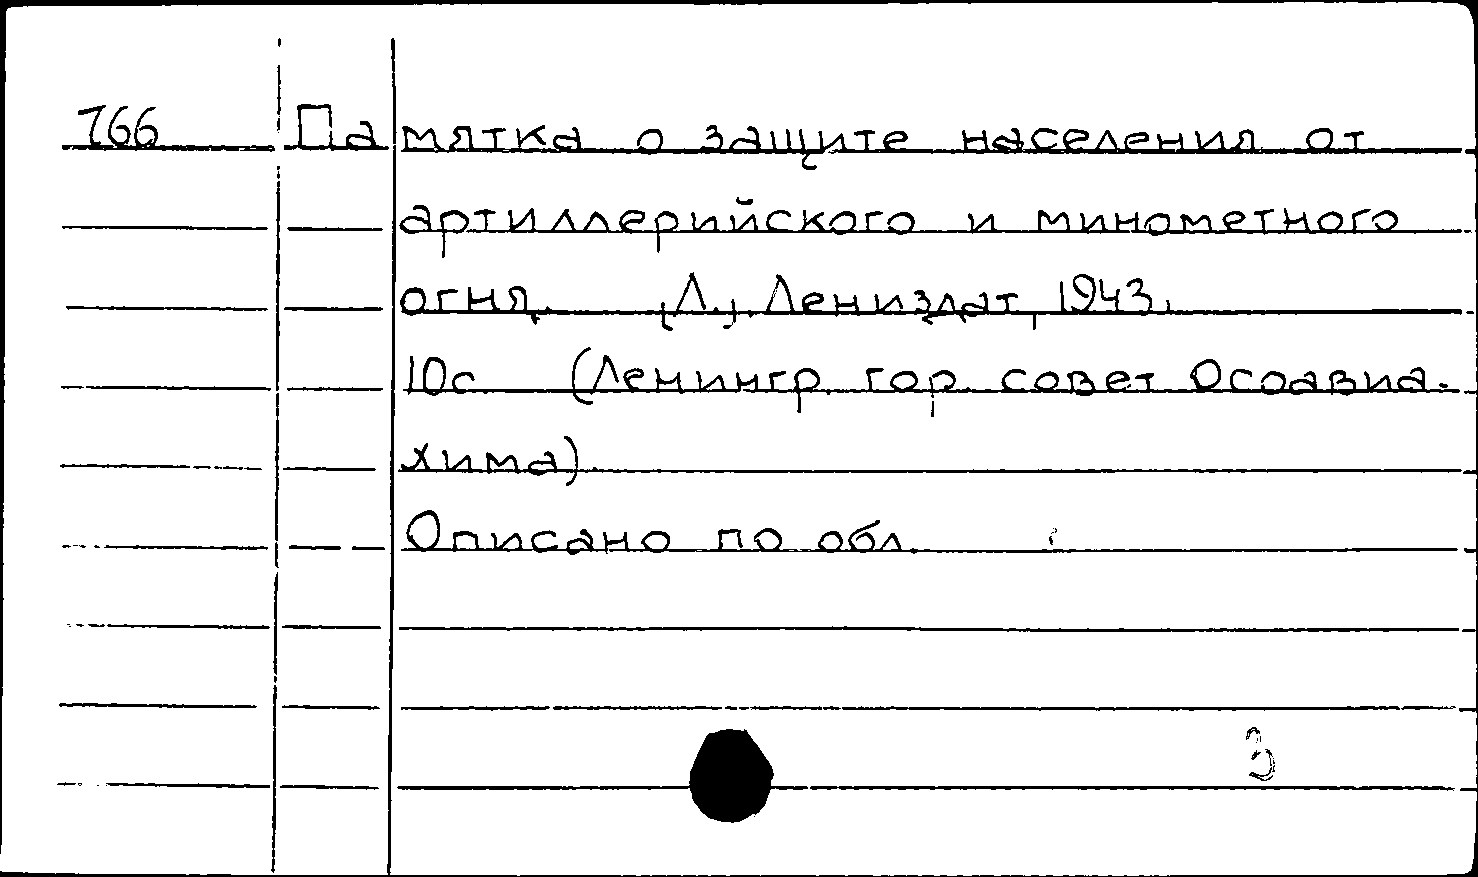 766 Памятка о защите населения от
артиллерийского и минометного
огня. [Л.], Лениздат, 1943.
10с (Ленингр. гор. совет Осоавиа-
хима).
Описано по обл.
3